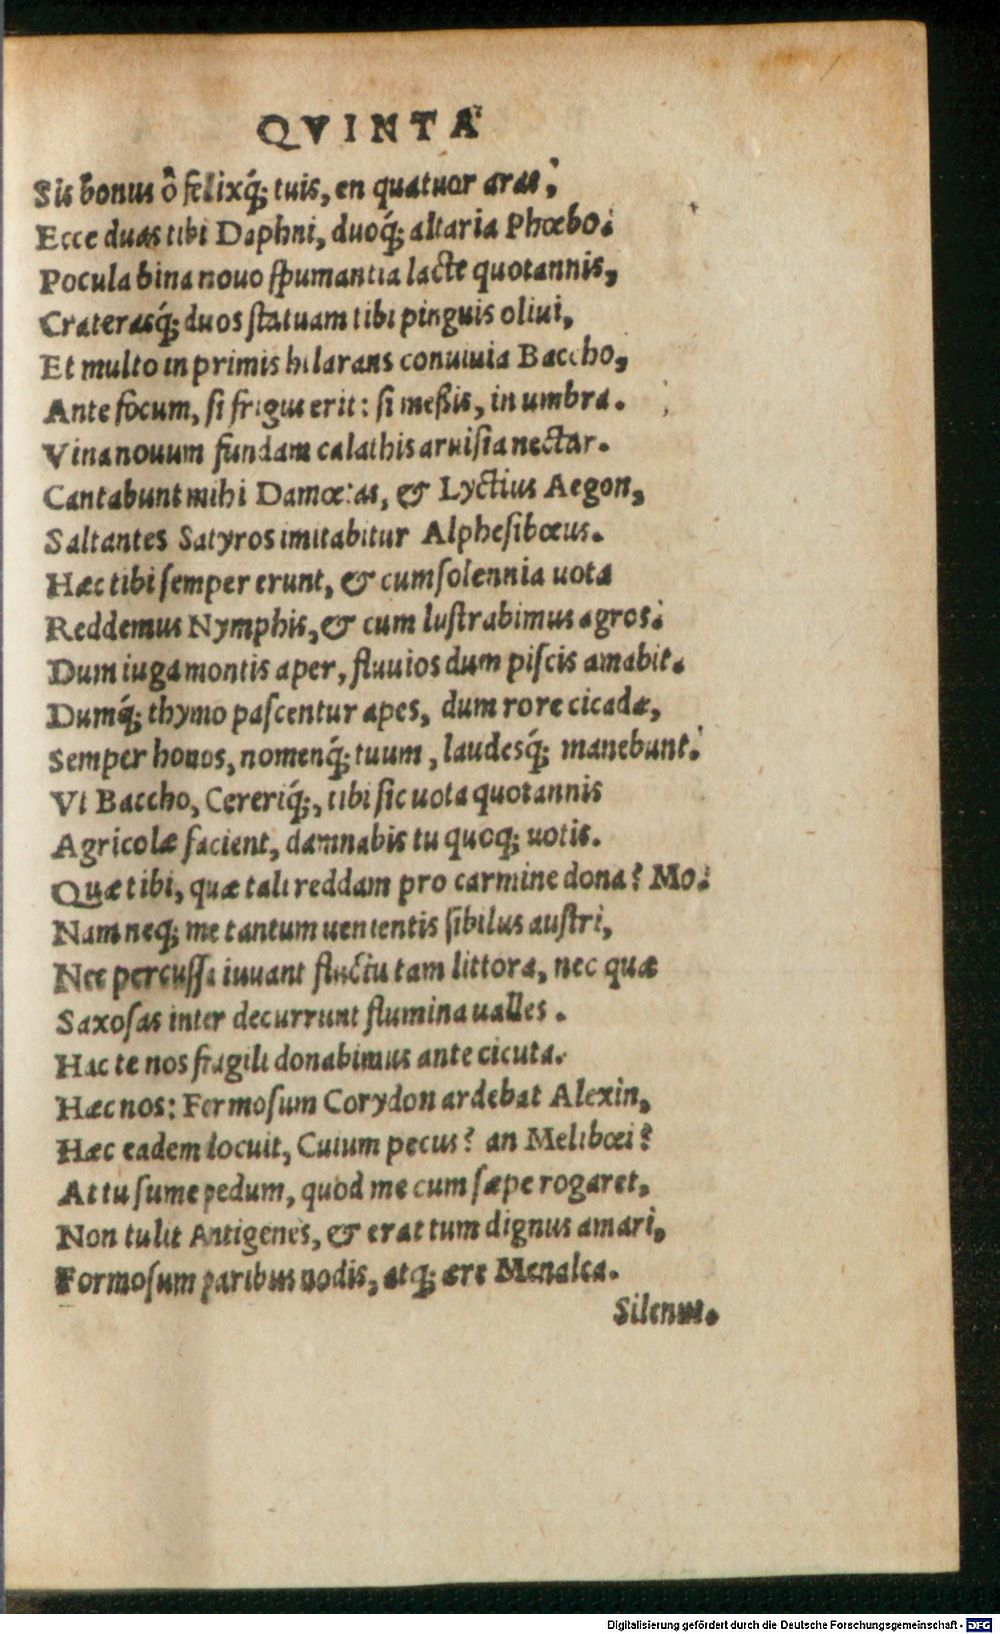 QVINTA
Sis bonus ô felixq́; tuis, en quatuor aras,
Ecce duas tibi Daphni, duoq́; altaria Phœbo:
Pocula bina nouo spumantia lacte quotannis,
Craterasq́; duos statuam tibi pinguis oliui,
Et multo in primis hilarans conuiuia Baccho,
Ante focum, si frigus erit: si meßis, in umbra.
Vina nouum fundam calathis aruisia nectar.
Cantabunt mihi Damœtas, & Lyctius Aegon,
Saltantes Satyros imitabitur Alphesibœus.
Hæc tibi semper erunt, & cum solennia uota
Reddemus Nymphis, & cum lustrabimus agros:
Dum iuga montis aper, fluuios dum piscis amabit.
Dumq́; thymo pascentur apes, dum rore cicadæ,
Semper honos, nomenq́; tuum, laudesq́; manebunt.
Vt Baccho, Cereriq́;, tibi sic uota quotannis
Agricolæ facient, damnabis tu quoq; uotis.
Quæ tibi, quæ tali reddam pro carmine dona? Mo.
Nam neq; me tantum uenientis sibilus austri,
Nec percussa iuuant fluctu tam littora, nec quæ
Saxosas inter decurrunt flumina ualles.
Hac te nos fragili donabimus ante cicuta.
Hæc nos: Formosum Corydon ardebat Alexin,
Hæc eadem docuit, Cuium pecus? an Melibœi?
At tu sume pedum, quod me cum sæpe rogaret,
Non tulit Antigenes, & erat tum dignus amari,
Formosum paribus nodis, atq; ære Menalca.
Silenus.
Digitalisierung gefördert durch die Deutsche Forschungsgemeinschaft - DFG